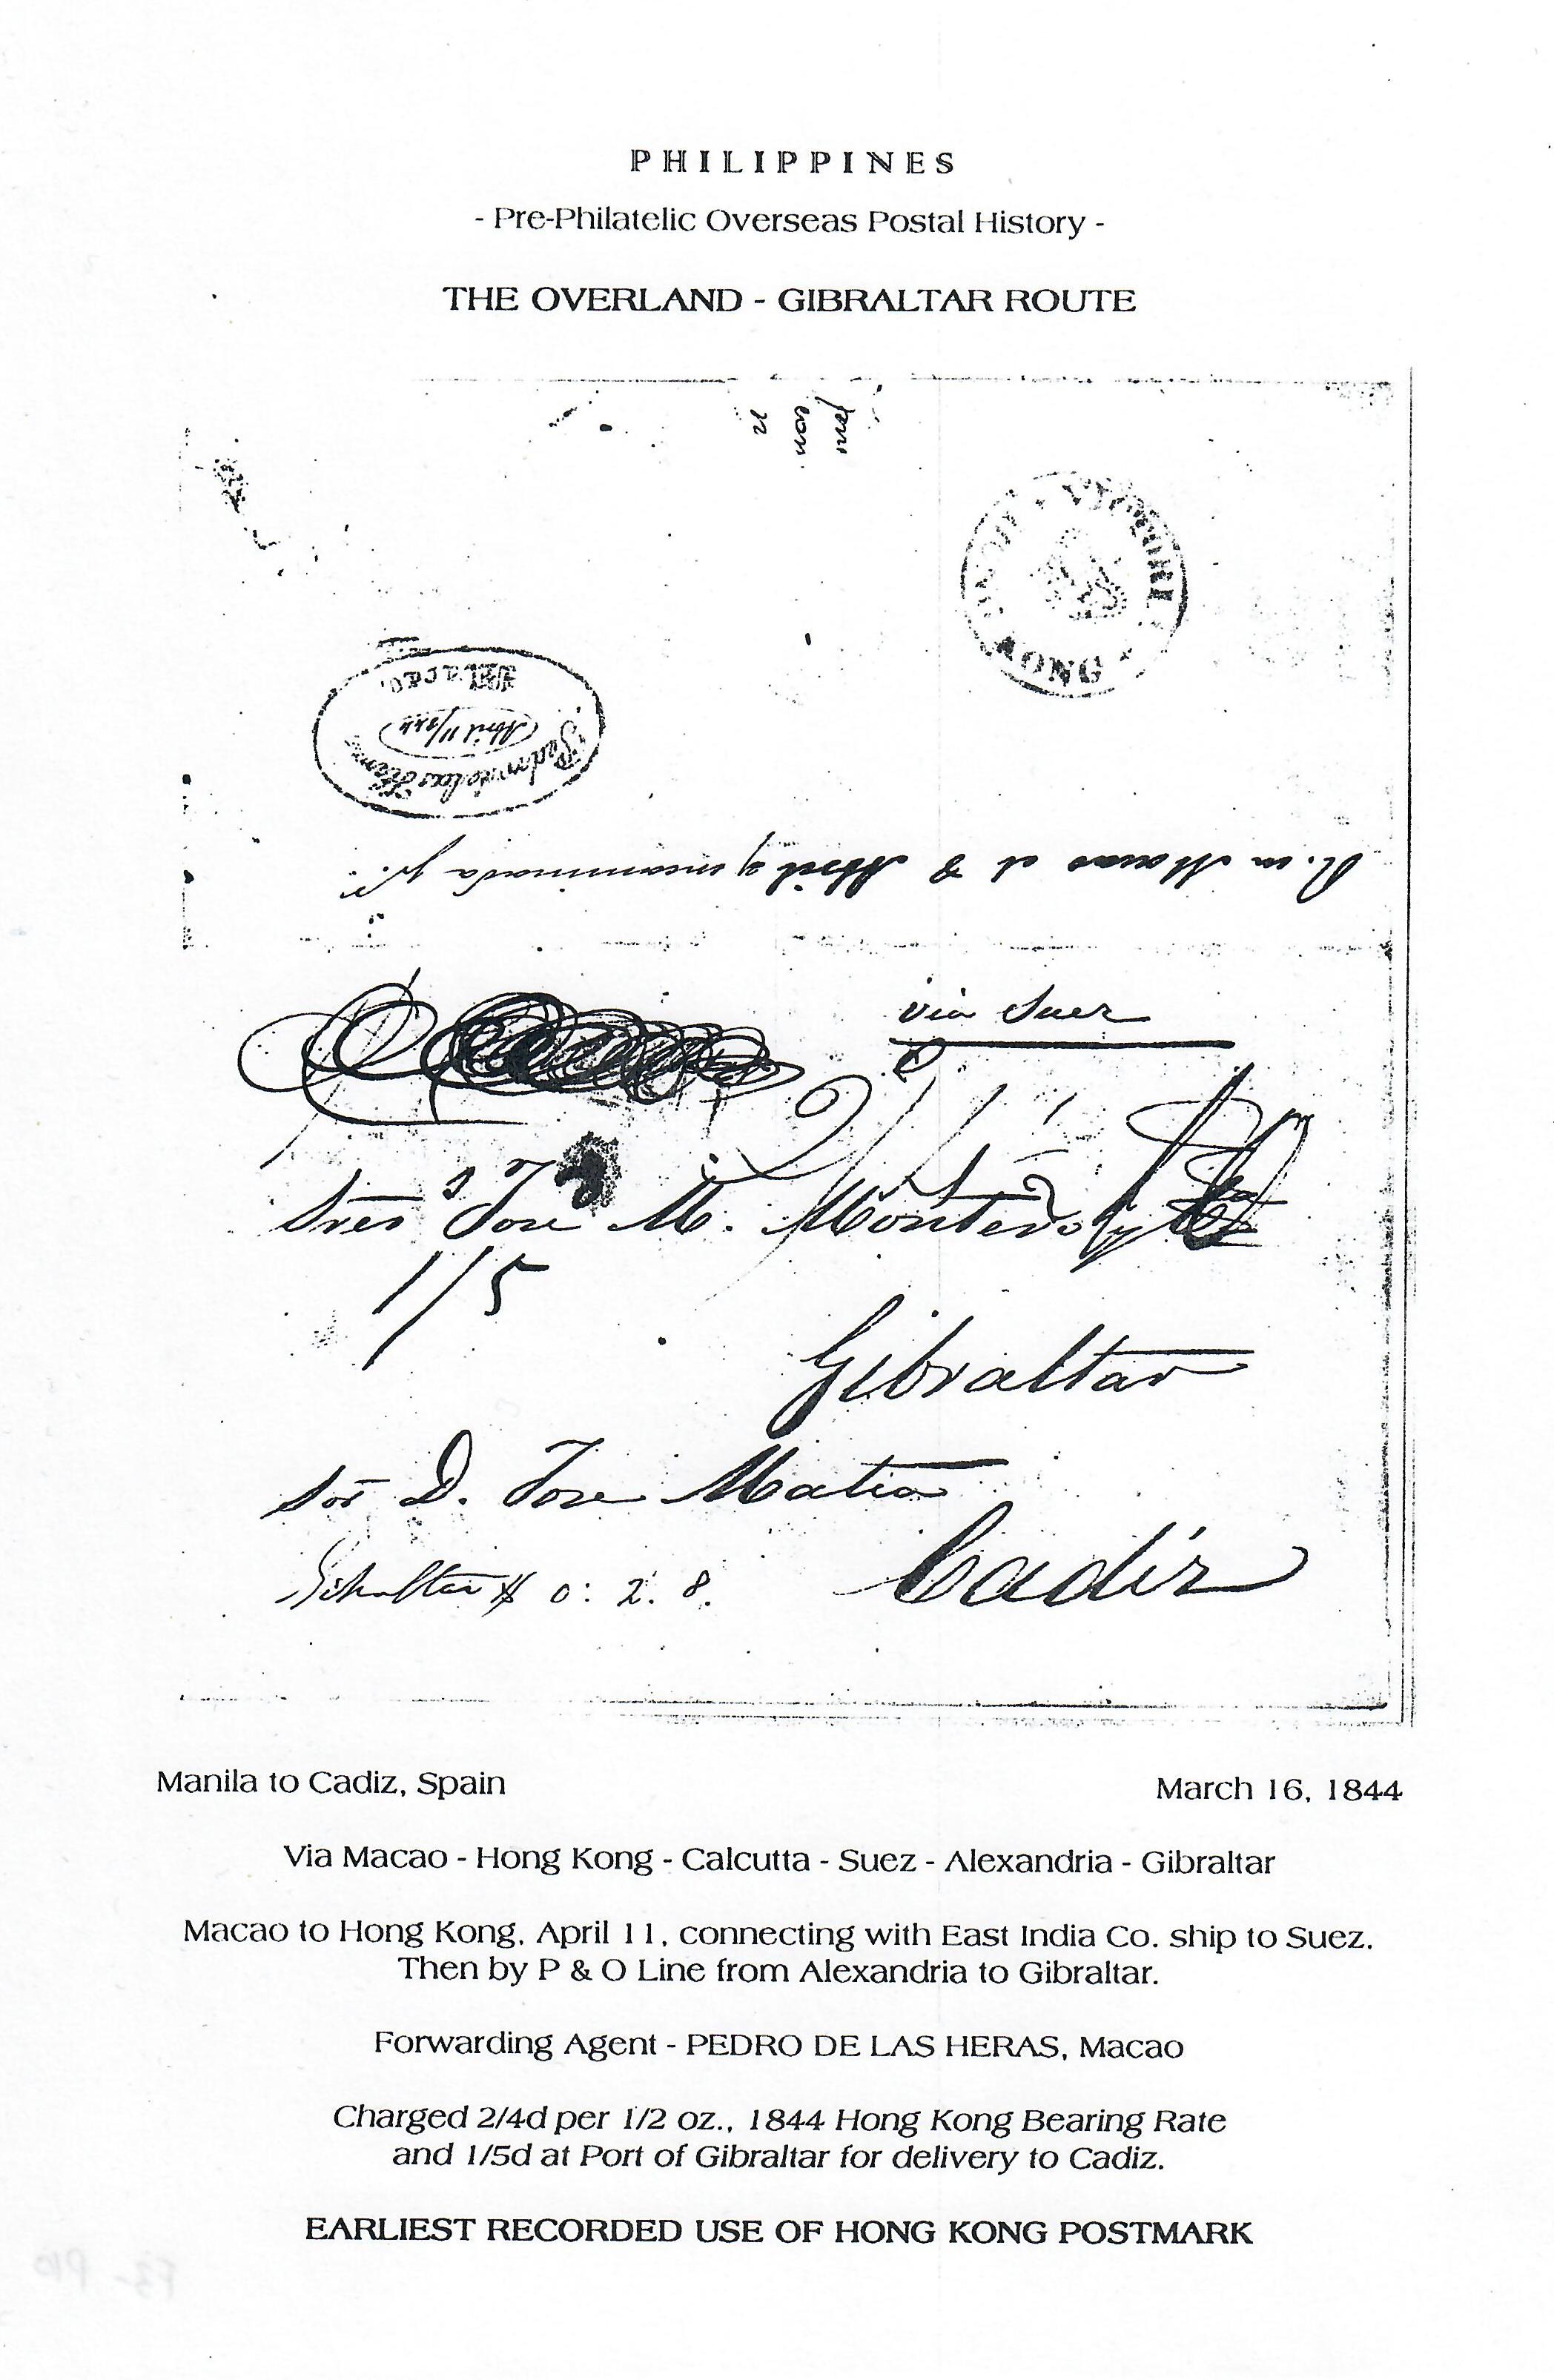 PHILIPPINES
- Pre-Philatelic Overseas Postal History -
THE OVERLAND - GIBRALTAR ROUTE
HONG KONG
Pedro de las Heras
Abril 11/844
MACAO.
R. en Macao el 8 Abril y encaminada pr.
via Suez
Sres Jose M. 
1/5
Gibraltar
Sor D. Jose Matia
Cadiz
Gibraltar $ 0: 2. 8.
Manila to Cadiz, Spain
March 16, 1844
Via Macao - Hong Kong - Calcutta - Suez - Alexandria - Gibraltar
Macao to Hong Kong, April 11, connecting with East India Co. ship to Suez.
Then by P & O Line from Alexandria to Gibraltar.
Forwarding Agent - PEDRO DE LAS HERAS, Macao
Charged 2/4d per 1/2 oz., 1844 Hong Kong Bearing Rate
and 1/5d at Port of Gibraltar for delivery to Cadiz.
EARLIEST RECORDED USE OF HONG KONG POSTMARK
F3-P10